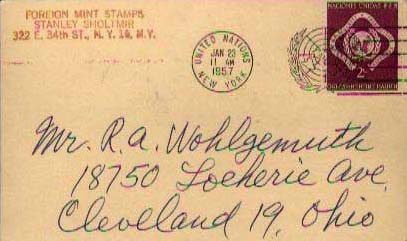 FOREIGN MINT STAMPS
STANLEY SHOLTMIR
322 E. 34th ST., N. Y. 16, N.Y.
UNITED NATIONS
JAN 23
11 AM
1957
NEW YORK
NACIONES UNIDAS
2¢
Mr. R. A. Wohlgemuth
18750 Locherie Ave.
Cleveland 19, Ohio